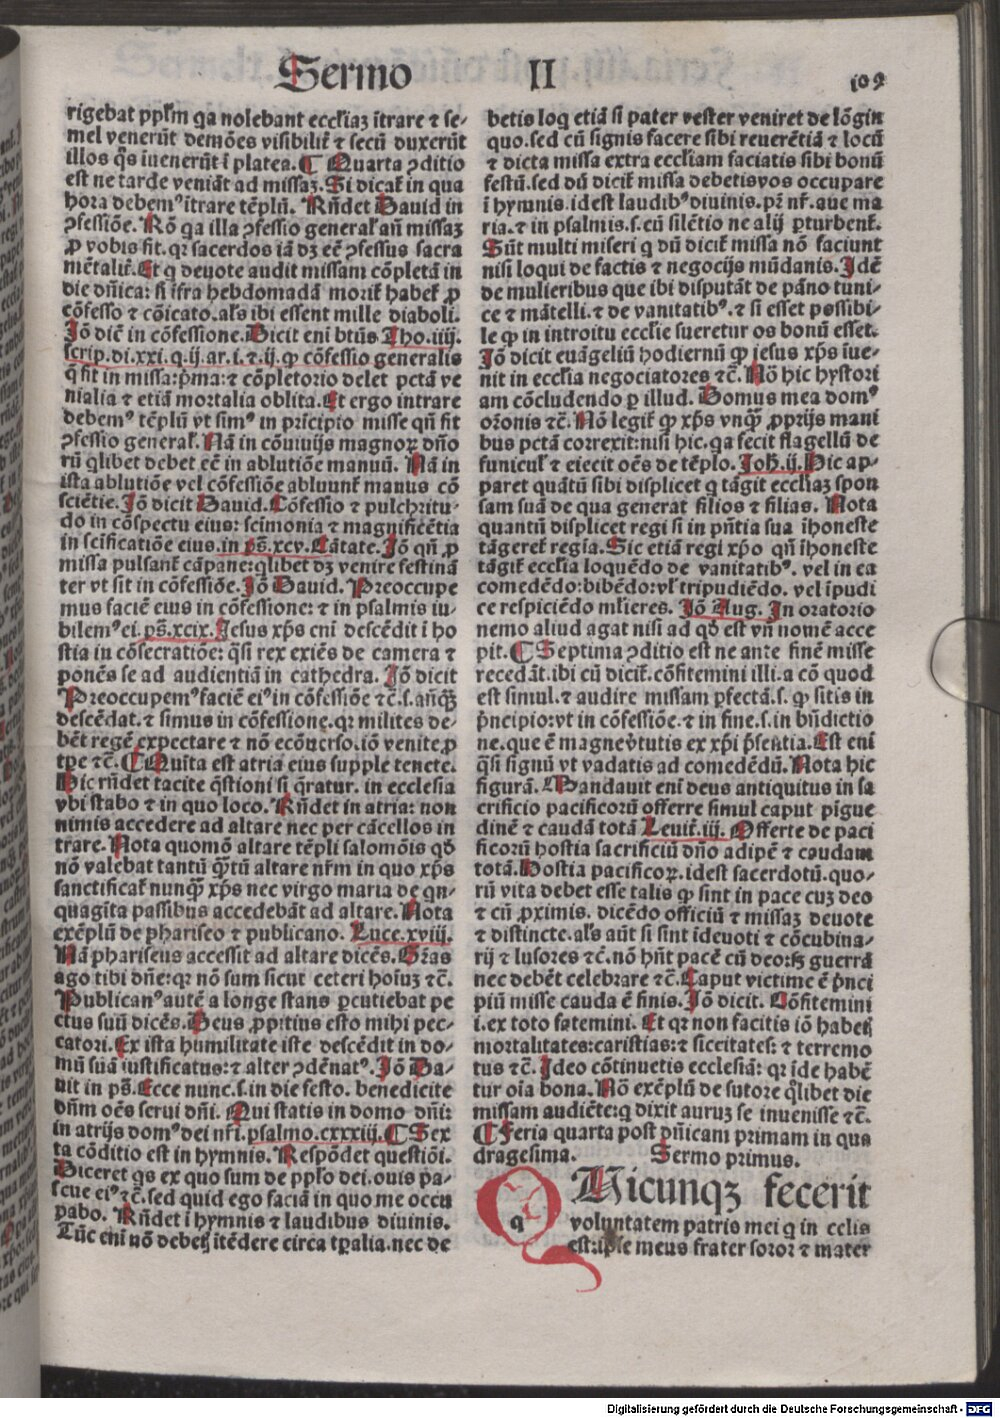 Sermo II 109
rigebat pplm̄ qa nolebant eccliaꝫ ītrare ⁊ se-
mel venerūt demōes visibilit̄ ⁊ secū duxerūt
illos q̄s īuenerūt ī platea. ¶ Quarta ↄditio
est ne tarde veniāt ad missaꝫ. Si dicat̄ in qua
hora debemꝰ ītrare tēplū. Rn̄det Dauid in
ↄfessiōe. Rō qa illa ↄfessio general̄ an̄ missaꝫ
ꝓ vobis fit. qꝛ sacerdos iā dꝫ eē ↄfessus sacra
mētalit̄. Et q deuote audit missam cōpletā in
die dn̄ica: si īfra hebdomadā morit̄ habet̄ ꝓ
cōfesso ⁊ cōicato. als ibi essent mille diaboli.
Jō dic̄ in cōfessione. Dicit eni btūs Tho. iiij.
scrip. di. xxi. q. ij. ar. i. ⁊ ij. ꝙ cōfessio generalis
q̄ fit in missa: p̄ma: ⁊ cōpletorio delet pctā ve
nialia ⁊ etiā mortalia oblita. Et ergo intrare
debemꝰ tēplū vt simꝰ in p̄ricipio misse qn̄ fit
ↄfessio general̄. Nā in cōuiuijs magnoꝝ dn̄o
rū qlibet debet eē in ablutiōe manuū. Nā in
ista ablutiōe vel cōfessiōe abluunt̄ manus cō
sciētie. Jō dicit Dauid. Cōfessio ⁊ pulchritu-
do in cōspectu eius: scimonia ⁊ magnificētia
in scificatiōe eius. in ps̄. xcv. Cātate. Jō qn̄ ꝓ
missa pulsant̄ cāpane: qlibet dꝫ venire festinā
ter vt sit in cōfessiōe. Jō Dauid. Preoccupe
mus faciē eius in cōfessione: ⁊ in psalmis iu-
bilemꝰ ei. ps̄. xcix. Jesus xp̄s eni descēdit ī ho
stia in cōsecratiōe: q̄si rex exiēs de camera ⁊
ponēs se ad audientiā in cathedra. Jō dicit
Preoccupemꝰ faciē eiꝰ in cōfessiōe ⁊c̄. s. an̄qꝫ
descēdat. ⁊ simus in cōfessione. qꝛ milites de-
bēt regē expectare ⁊ nō ecōuerso. iō venite ꝓ
tpe ⁊c̄. ¶ Quīta est atria eius supple tenete.
Hic rn̄det tacite q̄stioni si q̄ratur. in ecclesia
vbi stabo ⁊ in quo loco. Rn̄det in atria: non
nimis accedere ad altare nec per cācellos in
trare. Nota quomō altare tēpli salomōis qd̄
nō valebat tantū q̄tū altare nr̄m in quo xp̄s
sanctificat̄ nunq̄ xp̄s nec virgo maria de qn-
quagīta passibus accedebāt ad altare. Nota
exēplū de phariseo ⁊ publicano. Luce. xviij.
Nā phariseus accessit ad altare dicēs. Gr̄as
ago tibi dn̄e: qꝛ nō sum sicut ceteri hoīuꝫ ⁊c̄.
Publicanꝰ autē a longe stans ꝑcutiebat pe
ctus suū dicēs. Deus ꝓpitius esto mihi pec-
catori. Ex ista humilitate iste descēdit in do-
mū suā iustificatus: ⁊ alter ↄdēnatꝰ. Jō Da-
uit in ps̄. Ecce nunc. s. in die festo. benedicite
dn̄m oēs serui dn̄i. Qui statis in domo dn̄i:
in atrijs domꝰ dei nr̄i. psalmo. cxxxiij. ¶ Sex
ta cōditio est in hymnis. Respōdet questiōi.
Diceret qs ex quo sum de pplo dei. ouis pa-
scue eiꝰ ⁊c̄. sed quid ego faciā in quo me occu
pabo. Rn̄det ī hymnis ⁊ laudibus diuinis.
Tūc eni nō debetꝭ itēdere circa tꝑalia. nec de
betis loq etiā si pater vester veniret de lōgin
quo. sed cū signis facere sibi reuerētiā ⁊ locū
⁊ dicta missa extra eccliam faciatis sibi bonū
festū. sed dū dicit̄ missa debetisvos occupare
ī hymnis. idest laudibꝰ diuinis. pr̄ nr̄. aue ma
ria. ⁊ in psalmis. s. cū silētio ne alij ꝑturbent̄.
Sūt multi miseri q dū dicit̄ missa nō faciunt
nisi loqui de factis ⁊ negocijs mūdanis. Idē
de mulieribus que ibi disputāt de pāno tuni-
ce ⁊ mātelli. ⁊ de vanitatibꝰ. ⁊ si esset possibi-
le ꝙ in introitu ecclie sueretur os bonū esset.
Jō dicit euāgeliū hodiernū ꝙ jesus xp̄s īue-
nit in ecclia negociatores ⁊c̄. Nō hic hystori
am cōcludendo ꝑ illud. Domus mea domꝰ
orōnis ⁊c̄. Nō legit̄ ꝙ xp̄s vnq̄ ꝓprijs mani
bus pctā correxit: nisi hic. qa fecit flagellū de
funicul̄ ⁊ eiecit oēs de tēplo. Joh̄. ij. Hic ap-
paret quātū sibi displicet q tāgit eccliaꝫ spon
sam suā de qua generat filios ⁊ filias. Nota
quantū displicet regi si in pn̄tia sua īhoneste
tāgeret̄ regīa. Sic etiā regi xp̄o qn̄ īhoneste
tāgit̄ ecclia loquēdo de vanitatibꝰ. vel in ea
comedēdo: bibēdo: vl̄ tripudiēdo. vel īpudi
ce respiciēdo ml̄ieres. Jō Aug. In oratorio
nemo aliud agat nisi ad qd̄ est vn̄ nomē acce
pit. ¶ Septima ↄditio est ne ante finē misse
recedāt. ibi cū dicit̄. cōfitemini illi. a cō quod
est simul. ⁊ audire missam ꝑfectā. s. ꝙ sitis in
p̄ncipio: vt in cōfessiōe. ⁊ in fine. s. in bn̄dictio
ne. que ē magnev̓tutis ex xp̄i p̄sentia. Est eni
q̄si signū vt vadatis ad comedēdū. Nota hic
figurā. Mandauit eni deus antiquitus in sa
crificio pacificorū offerre simul caput pīgue
dinē ⁊ caudā totā Leuit̄. iij. Offerte de paci
ficorū hostia sacrificiū dn̄o adipē ⁊ caudam
totā. Hostia pacificoꝝ. idest sacerdotū. quo-
rū vita debet esse talis ꝙ sint in pace cuꝫ deo
⁊ cū ꝓximis. dicēdo officiū ⁊ missaꝫ deuote
⁊ distincte. als aūt si sint īdeuoti ⁊ cōcubina-
rij ⁊ lusores ⁊c̄. nō hn̄t pacē cū deo: sꝫ guerrā
nec debēt celebrare ⁊c̄. Caput victime ē p̄nci
piū misse cauda ē finis. Jō dicit. Cōfitemini
i. ex toto fatemini. Et qꝛ non facitis iō habetꝭ
mortalitates: caristias: ⁊ siccitates: ⁊ terremo
tus ⁊c̄. Ideo cōtinuetis ecclesiā: qꝛ īde habē
tur oīa bona. Nō exēplū de sutore qlibet die
missam audiēte: q dixit auruꝫ se inuenisse ⁊c̄.
¶ Feria quarta post dn̄icam primam in qua
dragesima. Sermo primus.
QUicunqꝫ fecerit
voluntatem patris mei q in celis
est: ipse meus frater soror ⁊ mater
Digitalisierung gefördert durch die Deutsche Forschungsgemeinschaft - DFG